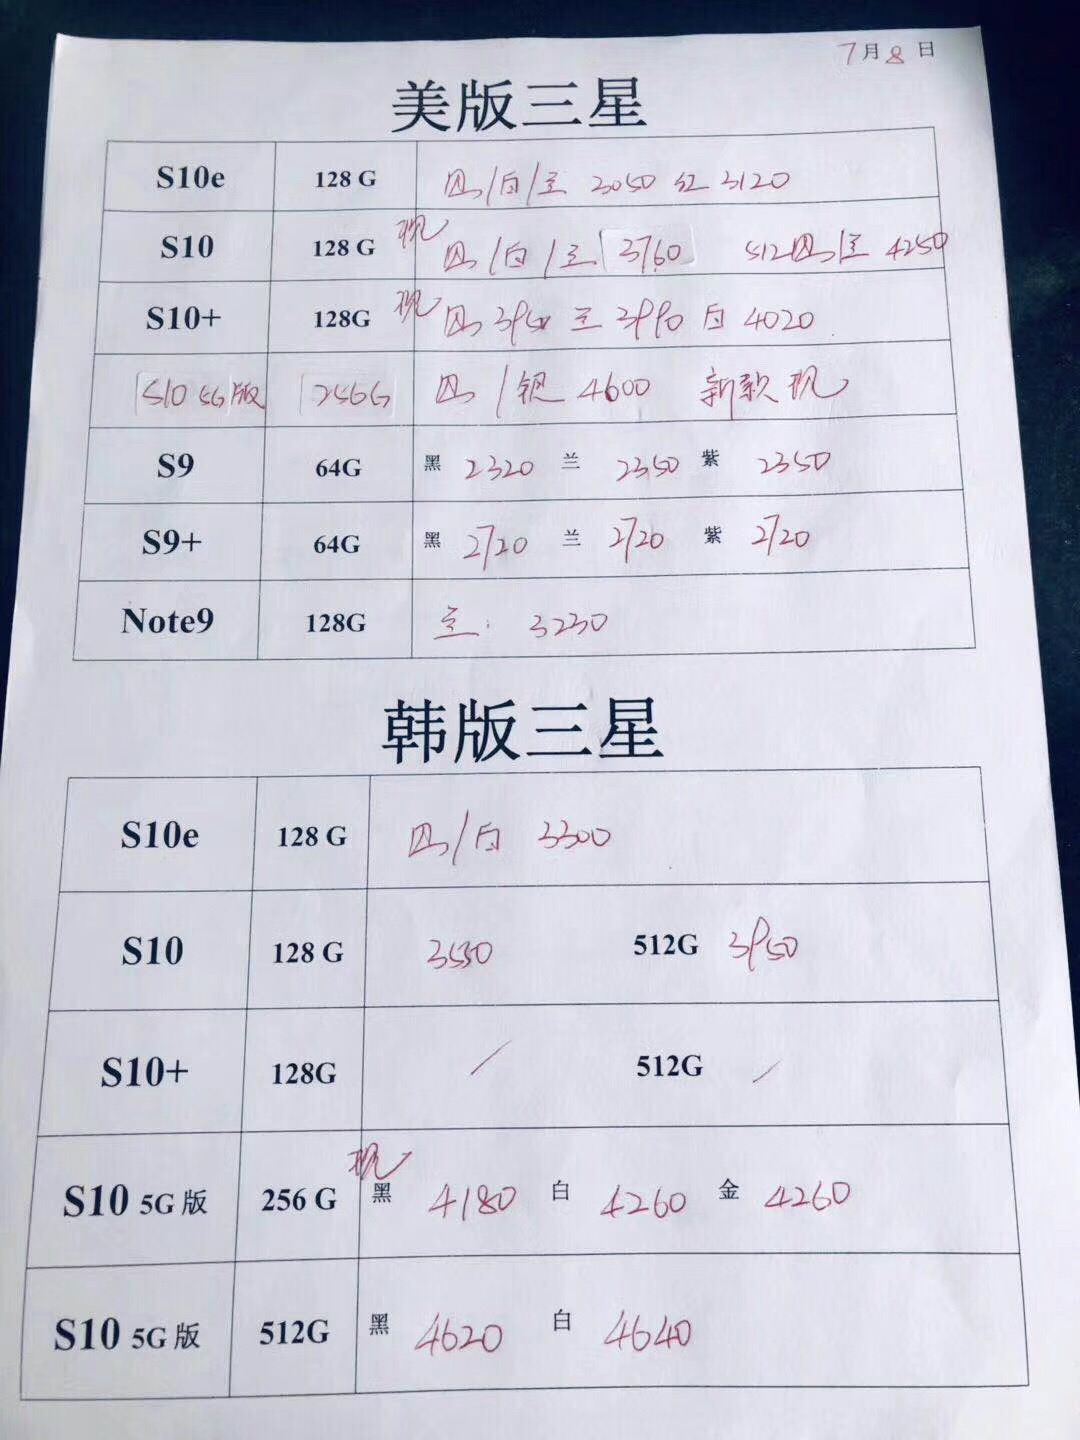 7月8日
美版三星
S10e 128 G 黑/白/兰 3050 红 3120
S10 128 G 现 黑/白/兰 3760 512黑/兰 4250
S10+ 128G 现 黑 3950 兰 3990 白 4020
S10 5G版 256G 黑/银 4600 新款现
S9 64G 黑 2320 兰 2350 紫 2350
S9+ 64G 黑 2720 兰 2720 紫 2720
Note9 128G 兰. 3230
韩版三星
S10e 128 G 黑/白 3300
S10 128 G 3530 512G 3950
S10+ 128G / 512G /
S10 5G版 256 G 现 黑 4180 白 4260 金 4260
S10 5G版 512G 黑 4620 白 4640